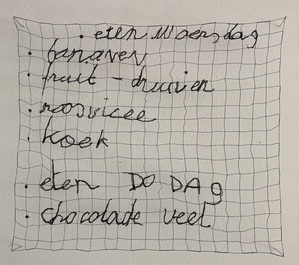 . eten Woensdag
. bananen
. fruit - druiven
. roosvicee
. koek
. eten DO DAG
. chocolade veel